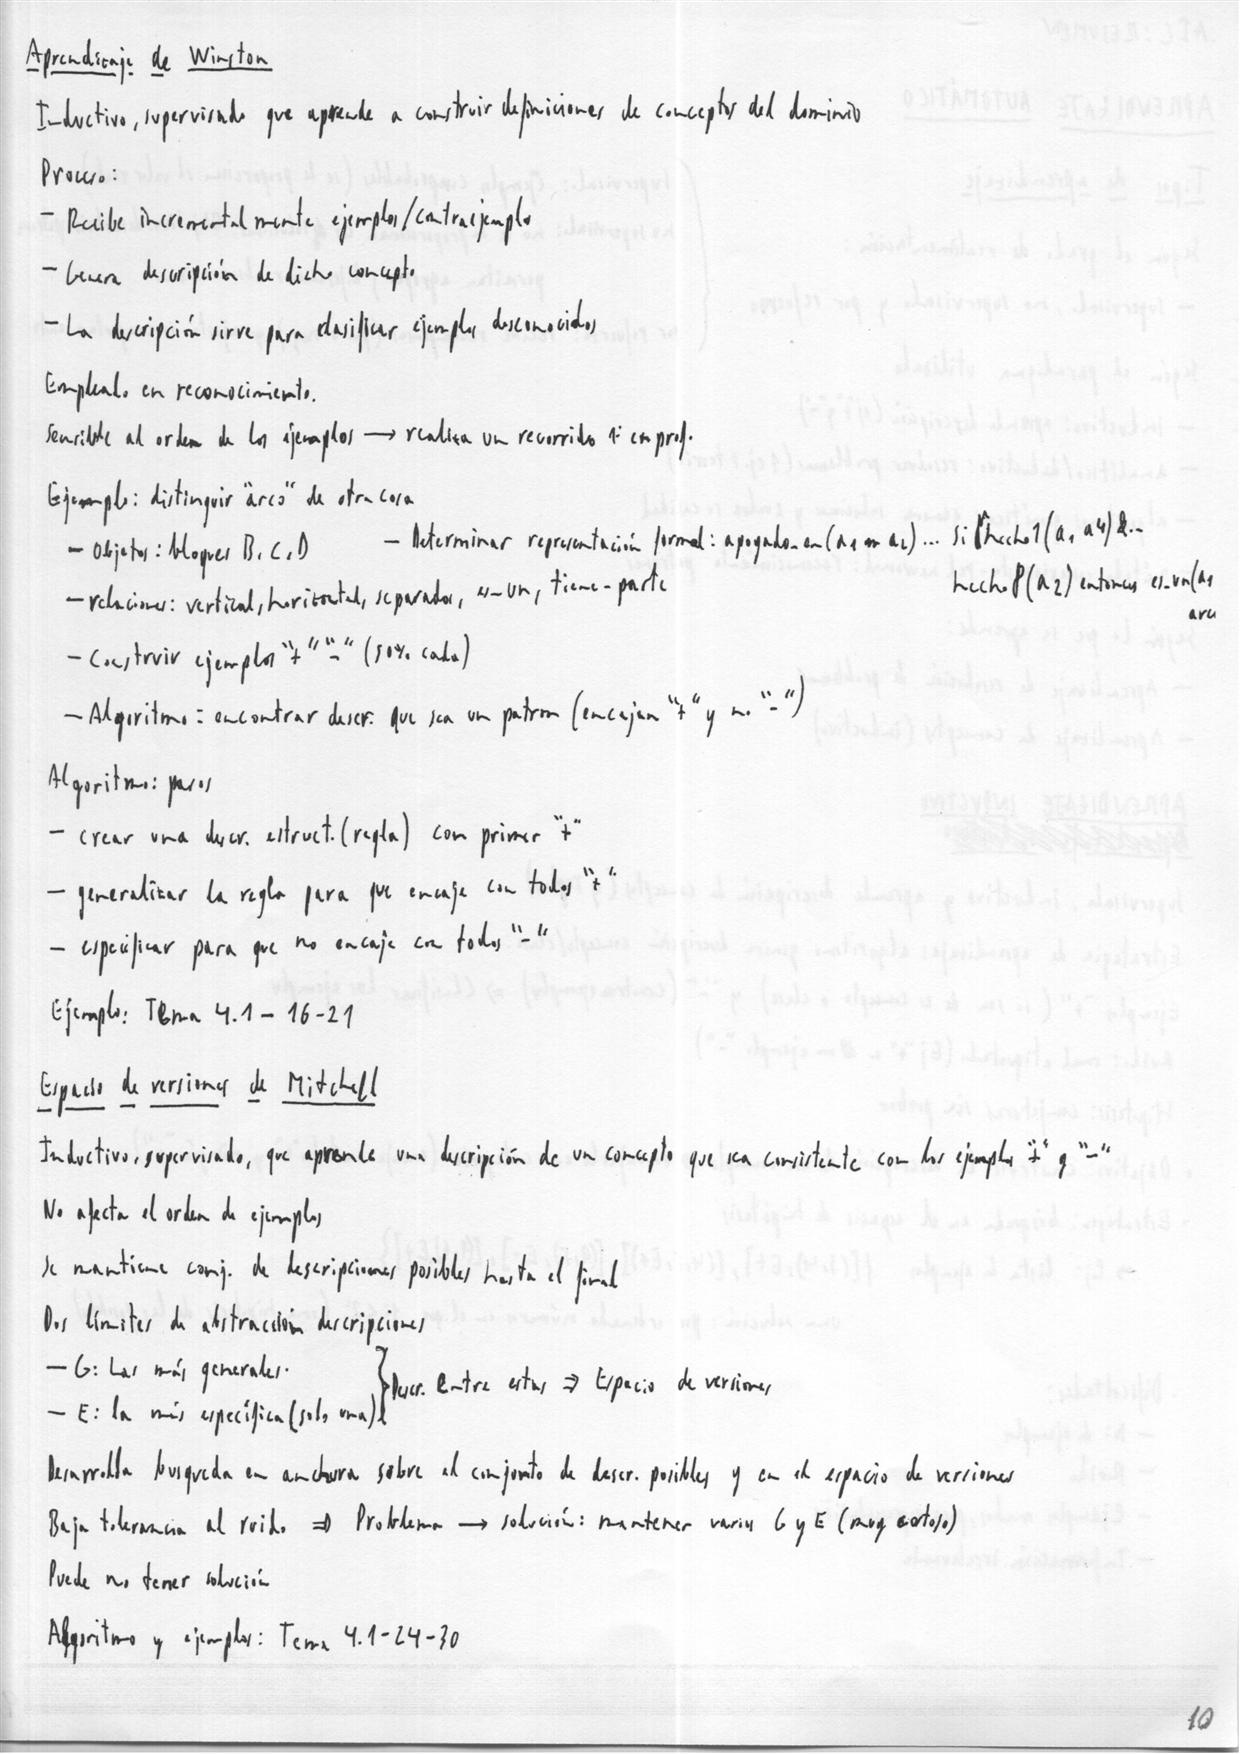 Aprendizaje de Winston
Inductivo, supervisado que aprende a construir definiciones de conceptos del dominio
Proceso:
- Recibe incrementalmente ejemplos/contraejemplo
- Genera descripción de dicho concepto
- La descripción sirve para clasificar ejemplos desconocidos
Empleado en reconocimiento.
Sensible al orden de los ejemplos → realiza un recorrido 1º en prof.
Ejemplo: distinguir "arco" de otra cosa
- Objetos: bloques B, C, D - Determinar representación formal: apoyado-en(a1 en a2)... Si hecho1(a1 a4) &...
hecho8(a2) entonces es-un(a1
- relaciones: vertical, horizontal, separados, es-un, tiene-parte
arco
- Construir ejemplos "+" "-" (50% cada)
- Algoritmo = encontrar descr. que sea un patron (encajan "+" y no "-")
Algoritmo: pasos
- crear una descr. estruct. (regla) com primer "+"
- generalizar la regla para que encaje con todos "+"
- especificar para que no encaje con todos "-"
Ejemplo: Tema 4.1 - 16-21
Espacio de versiones de Mitchell
Inductivo, supervisado, que aprende una descripción de un concepto que sea consistente con los ejemplos "+" y "-"
No afecta el orden de ejemplos
Se mantiene conj. de descripciones posibles hasta el final
Dos límites de abstracción descripciones
- G: Las más generales.
} Descr. Entre estas ⇒ Espacio de versiones
- E: la más específica (solo una)
Desarrolla busqueda en anchura sobre el conjunto de descr. posibles y en el espacio de versiones
Baja tolerancia al ruido ⇒ Problema → solución: mantener varios G y E (muy costoso)
Puede no tener solución
Algoritmo y ejemplos: Tema 4.1-24-30
10